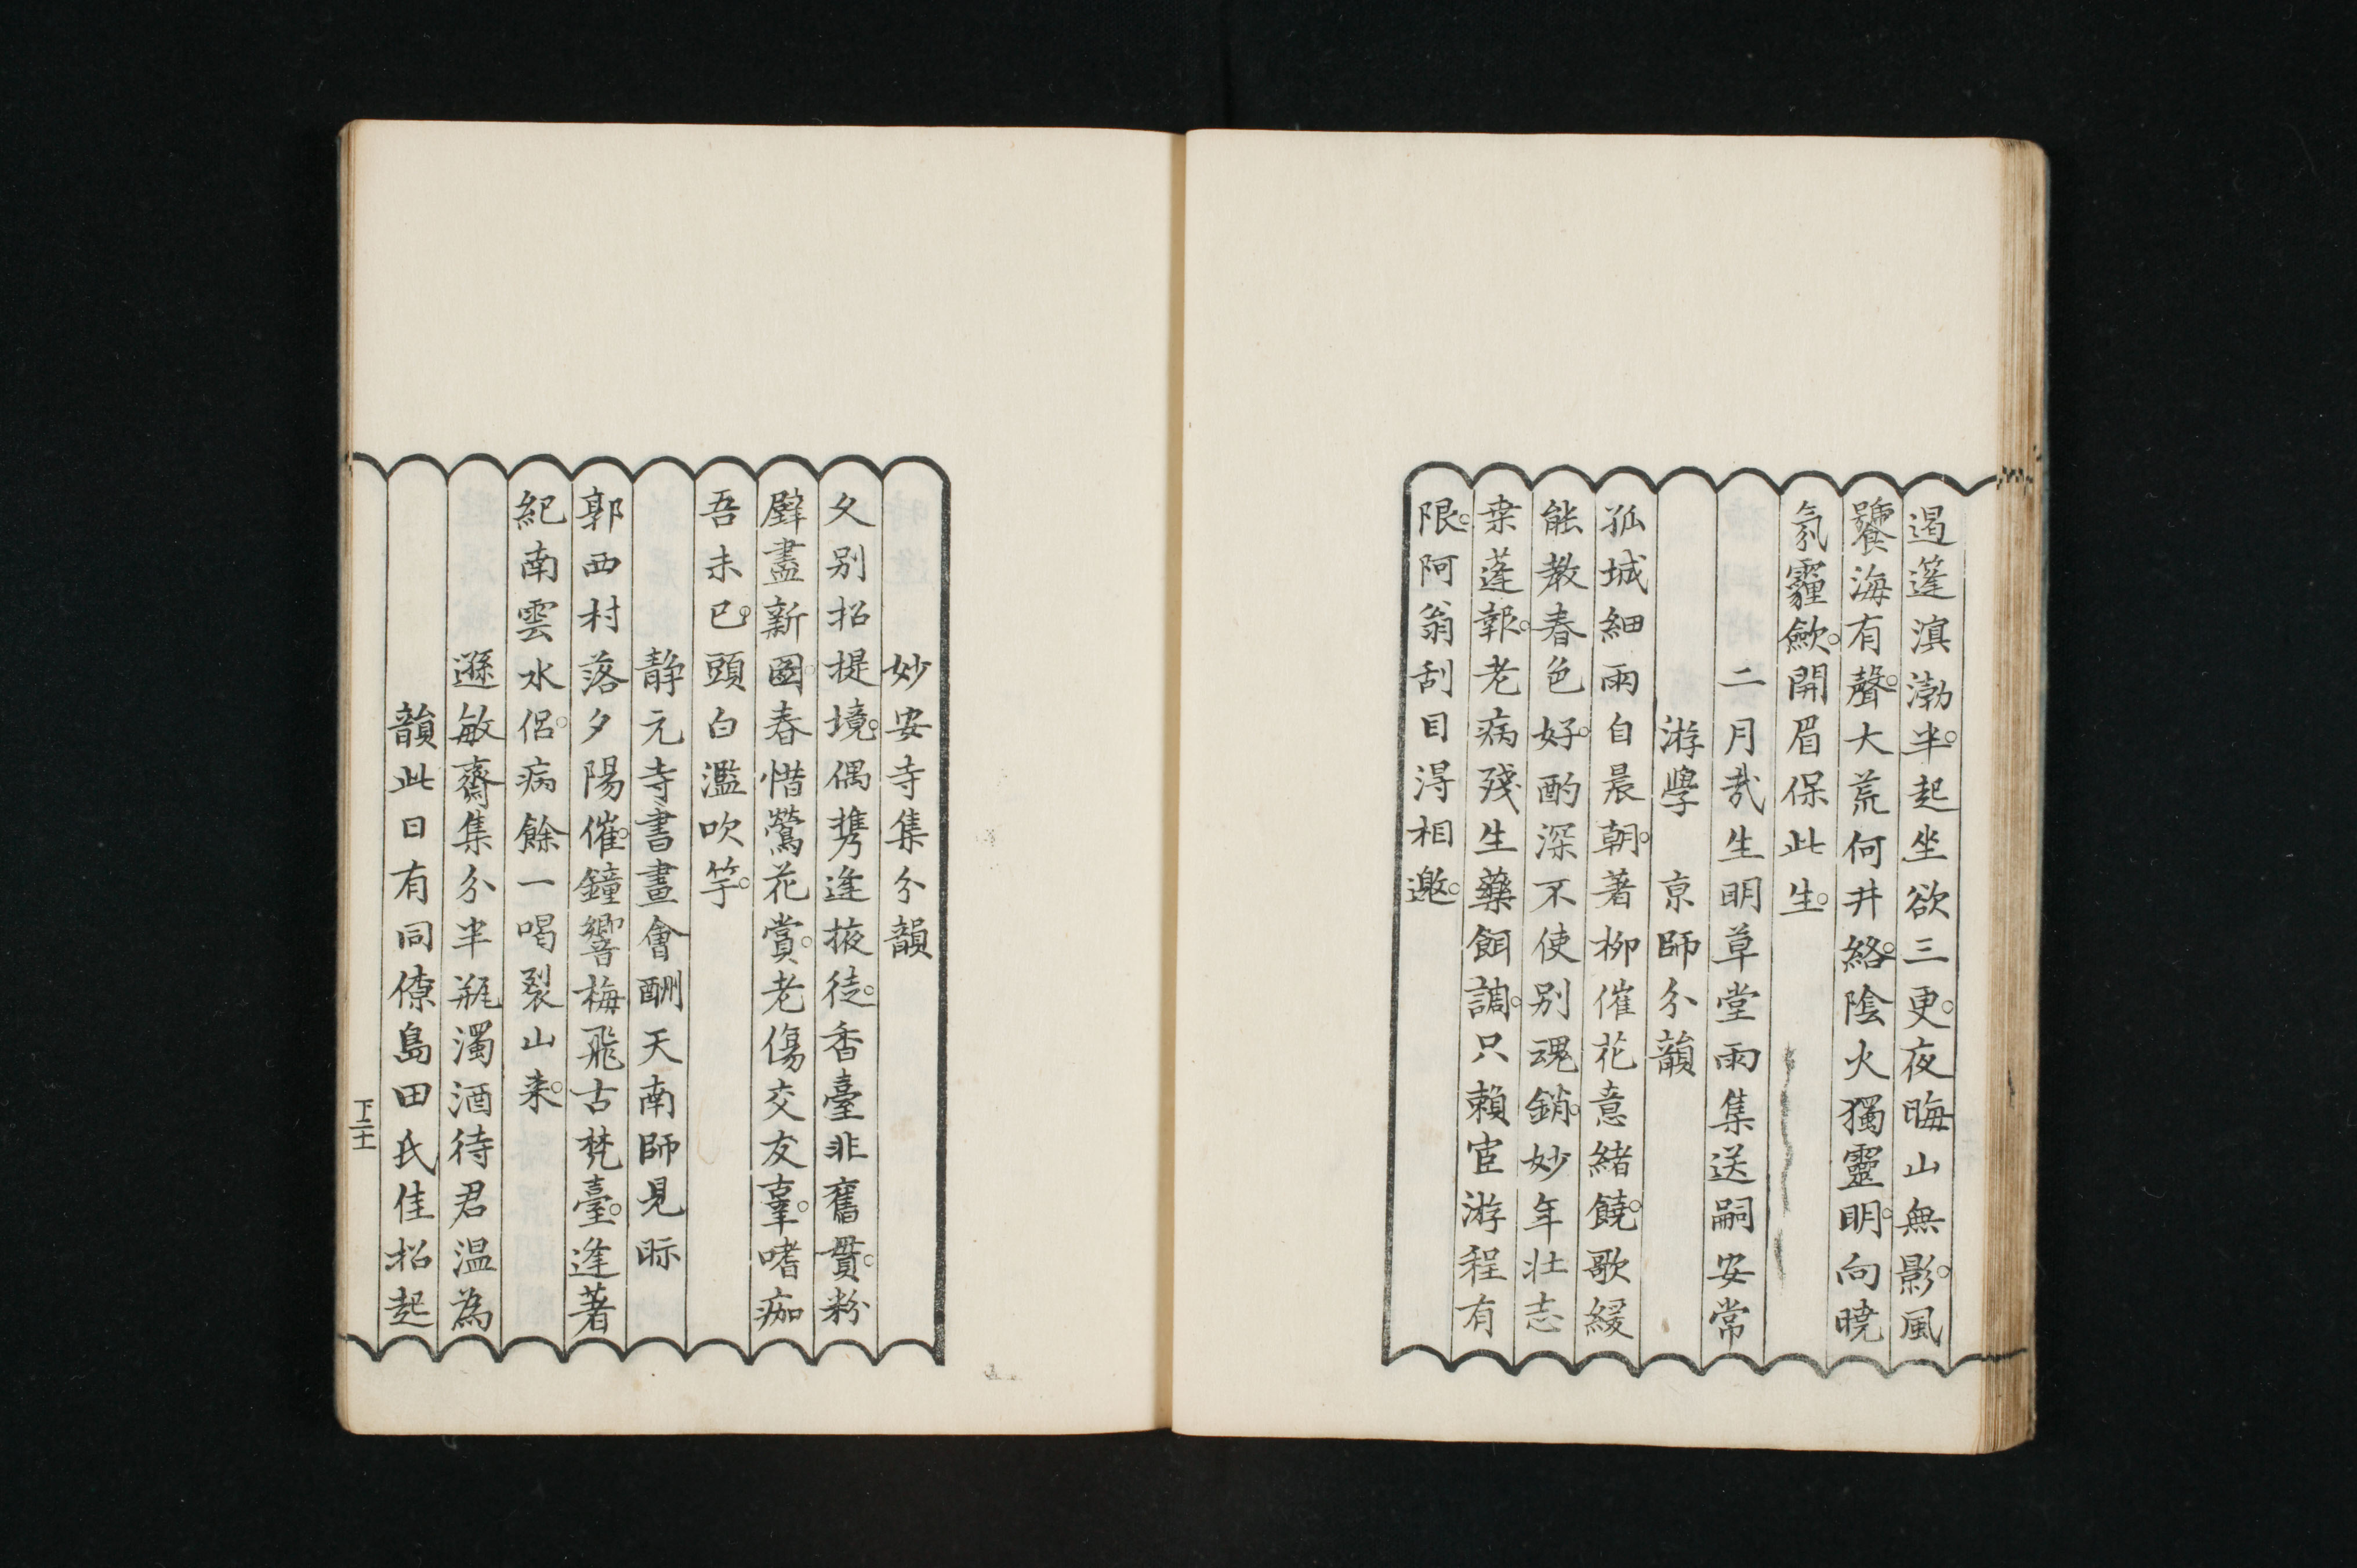 遏篷溟渤半。起坐欲三更。夜晦山無影。風
饕海有聲。大荒何井絡。陰火獨靈明。向曉
氛霾歛。開眉保此生。
二月哉生明草堂雨集送嗣安常
游學京師分韻
孤城細雨自晨朝。著柳催花意緒饒。歌緩
能教春色好。酌深不使別魂銷。妙年壯志
桒蓬報。老病殘生藥餌調。只賴宦游程有
限。阿翁刮目淂相邀。
妙安寺集分韻
夂別招提境。偶携逢掖徒。香臺非舊貫。粉
壁畫新圖。春惜鶯花賞。老傷交友辜。嗜痂
吾未已。頭白濫吹竽。
静元寺書畫會酬天南師見眎
郭西村落夕陽催。鐘響梅飛古梵臺。逢著
紀南雲水侶。病餘一喝裂山来。
遜敏齋集分半瓶濁酒待君温為
韻此日有同僚島田氏佳招起
下二十